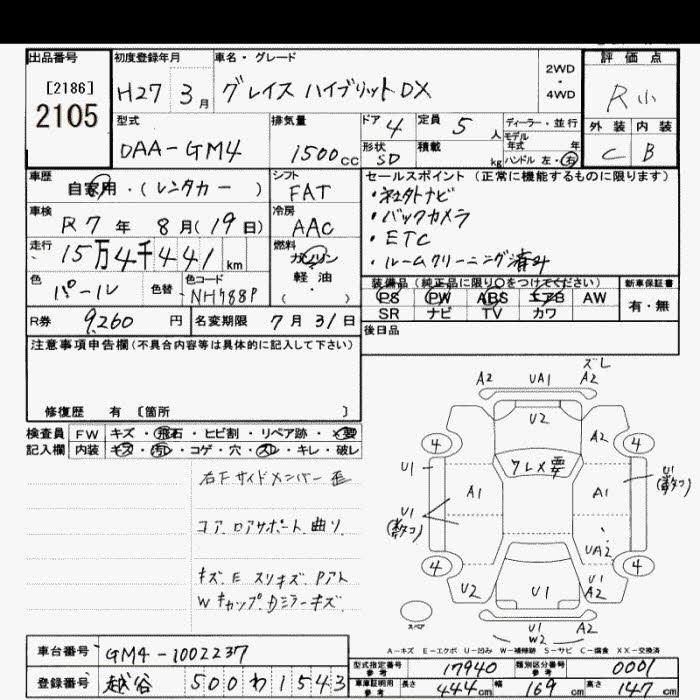 出品番号
[2186]
2105
初度登録年月
H27 3月
車名・グレード
グレイス ハイブリット DX
2WD
・
4WD
評価点
R小
外装 内装
C B
型式
DAA-GM4
排気量
1500cc
ドア 4
定員 5人
ディーラー・並行
モデル年式 年
形状 SD
積載 kg
ハンドル 左・右
車歴
自家用・(レンタカー)
シフト
FAT
車検
R7年 8月(19日)
冷房
AAC
走行
15万4千441km
燃料
ガソリン
軽・油
( )
色
パール
色替
色コード
NH788P
R券 9,260円
名変期限 7月31日
セールスポイント(正常に機能するものに限ります)
・社外ナビ
・バックカメラ
・ETC
・ルームクリーニング済み
装備品(純正品に限り○をつけてください)
新車保証書
PS PW ABS エアB AW
有・無
SR ナビ TV カワ
後日品
注意事項申告欄(不具合内容等は具体的に記入して下さい)
修復歴 有〔箇所 〕
検査員記入欄
FW キズ・飛石・ヒビ割・リペア跡・X要
内装 キズ・汚レ・コゲ・穴・スレ・キレ・破レ
右Fサイドメンバー歪
コア.ロアサポート曲リ
キズ.E スリキズ.Pアト
Wキャップ.Dミラーキズ
ズレ
A2 UA1 A2
U2
A2
4 4
クレメ要
U1 U1
(黄タコ)
A1 A1
U1
(黄タコ)
UA2
4 4
U2 U1 U1
A2
スペア
U1 A2
W2
A-キズ E-エクボ U-凹み W-補修跡 S-サビ C-腐食 XX-交換済
車台番号 GM4-1002237
登録番号 越谷 500 わ 1543
型式指定番号 参考 17940
類別区分番号 参考 0001
車庫証明用 参考 長さ 444cm 幅 169cm 高さ 147cm